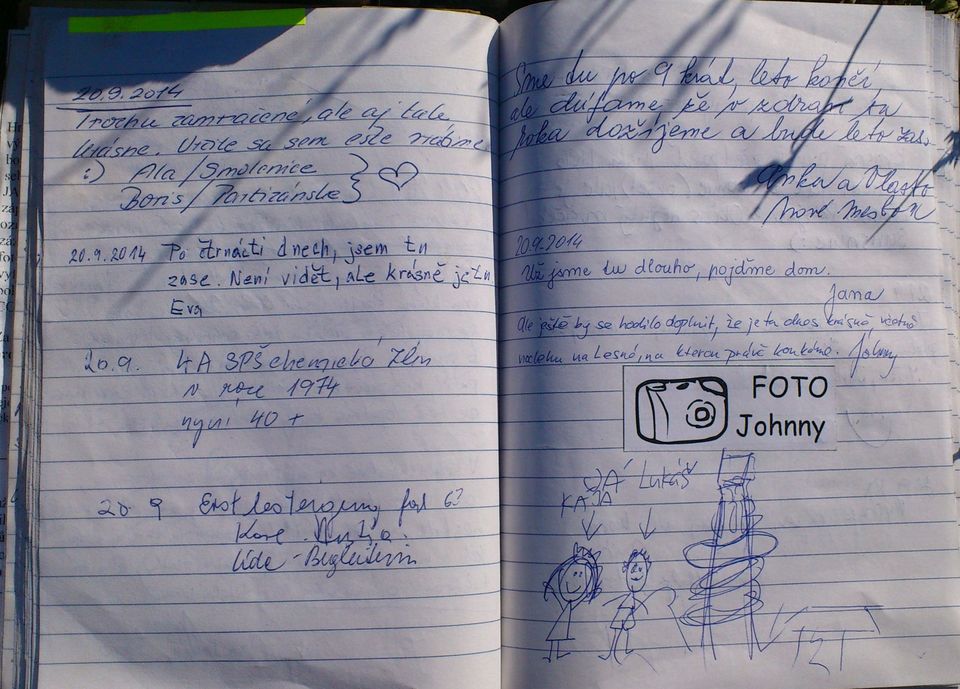 20.9.2014
Trochu zamračené, ale aj tak
krásne. Určite sa sem ešte vrátime
:) Ala/Smolenice
Boris/Partizánske
20.9.2014 Po čtrnácti dnech, jsem tu
zase. Není vidět, ale krásně je tu
Eva
20.9. 4A SPŠ chemická Zlín
v roce 1974
nyní 40+
20. 9 Erstbesteigung
Lide - Begleiterin
Sme tu po 9 krát, leto končí,
ale dúfame že v zdraví tu
roka dožijeme a bude leto zas.
Anka a Vlasto
Nové Mesto n
20.9.2014
Už jsme tu dlouho, pojďme dom.
Jana
Ale ještě by se hodilo doplnit, že je tu dnes krásně, včetně
na Lesné, na kterou právě koukáme. Johny
FOTO
Johnny
JÁ Lukáš
KÁJA